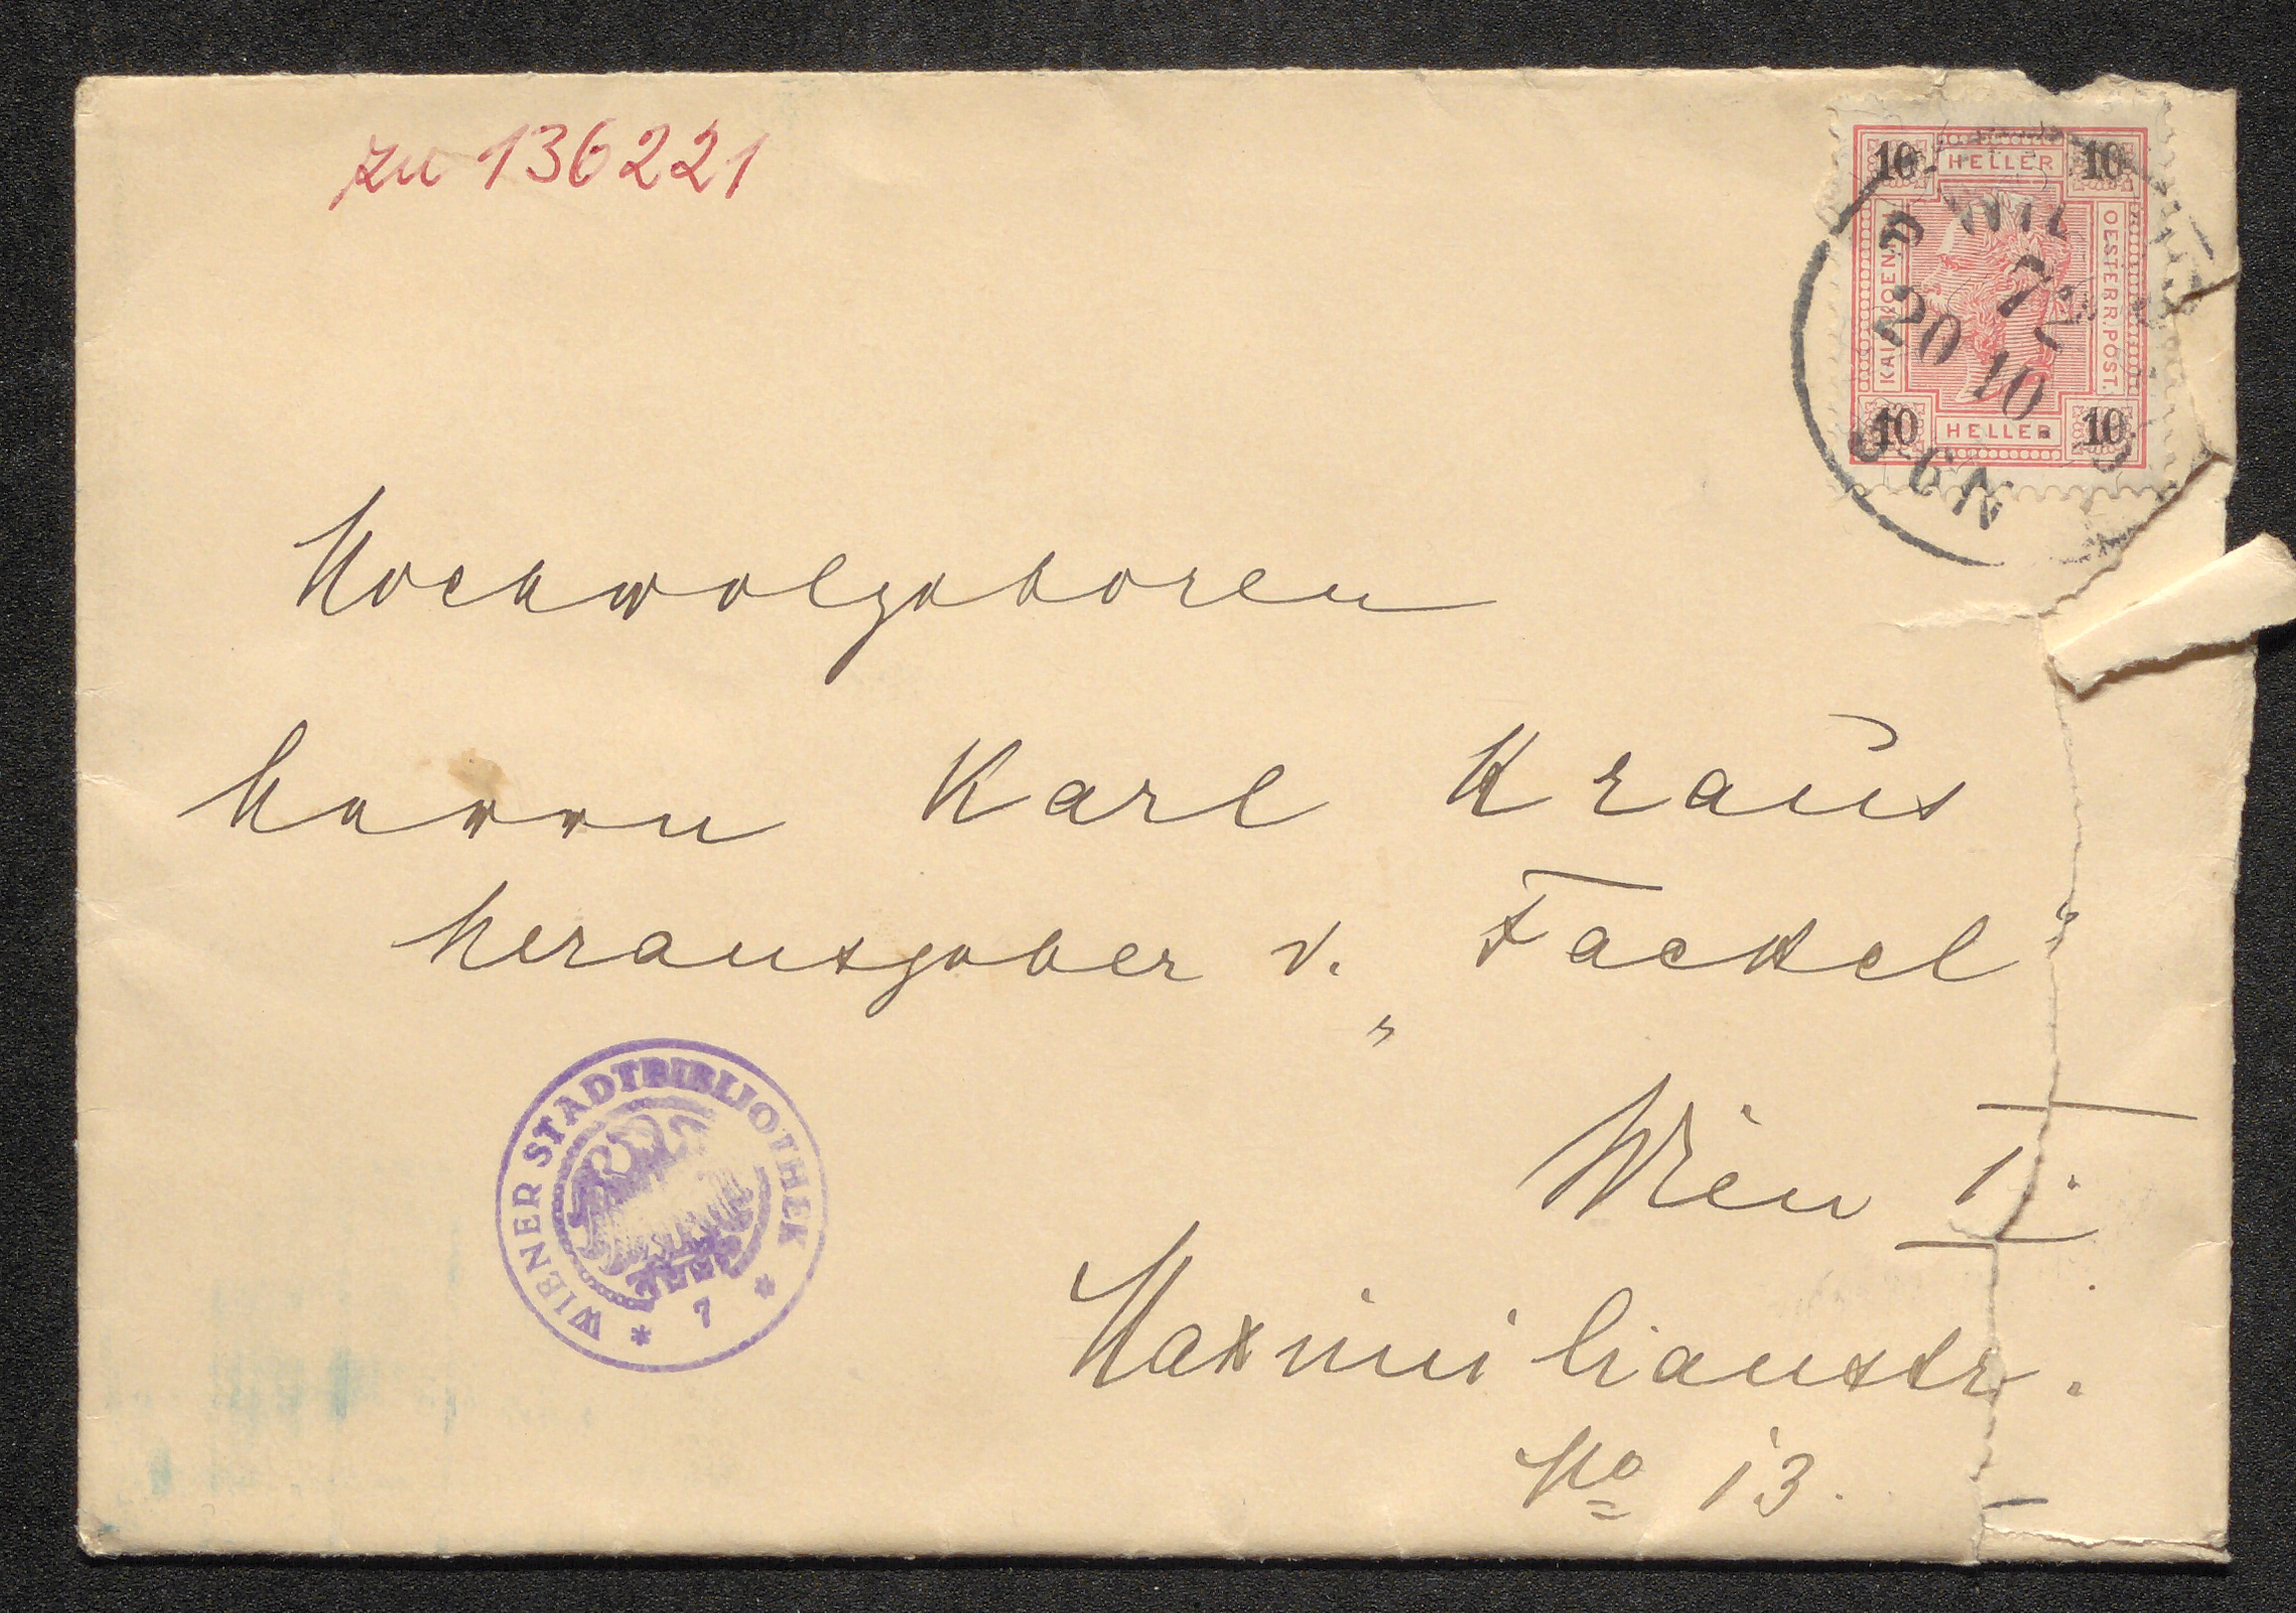 zu 136221
10 HELLER 10
OESTERR. POST.
10 HELLER 10
72
20 10
Hochwolgeboren
Herrn Karl Kraus
Herausgeber d. „Fackel“
Wien I.
Maximilianstr.
No 13.
WIENER STADTBIBLIOTHEK
* 7 *